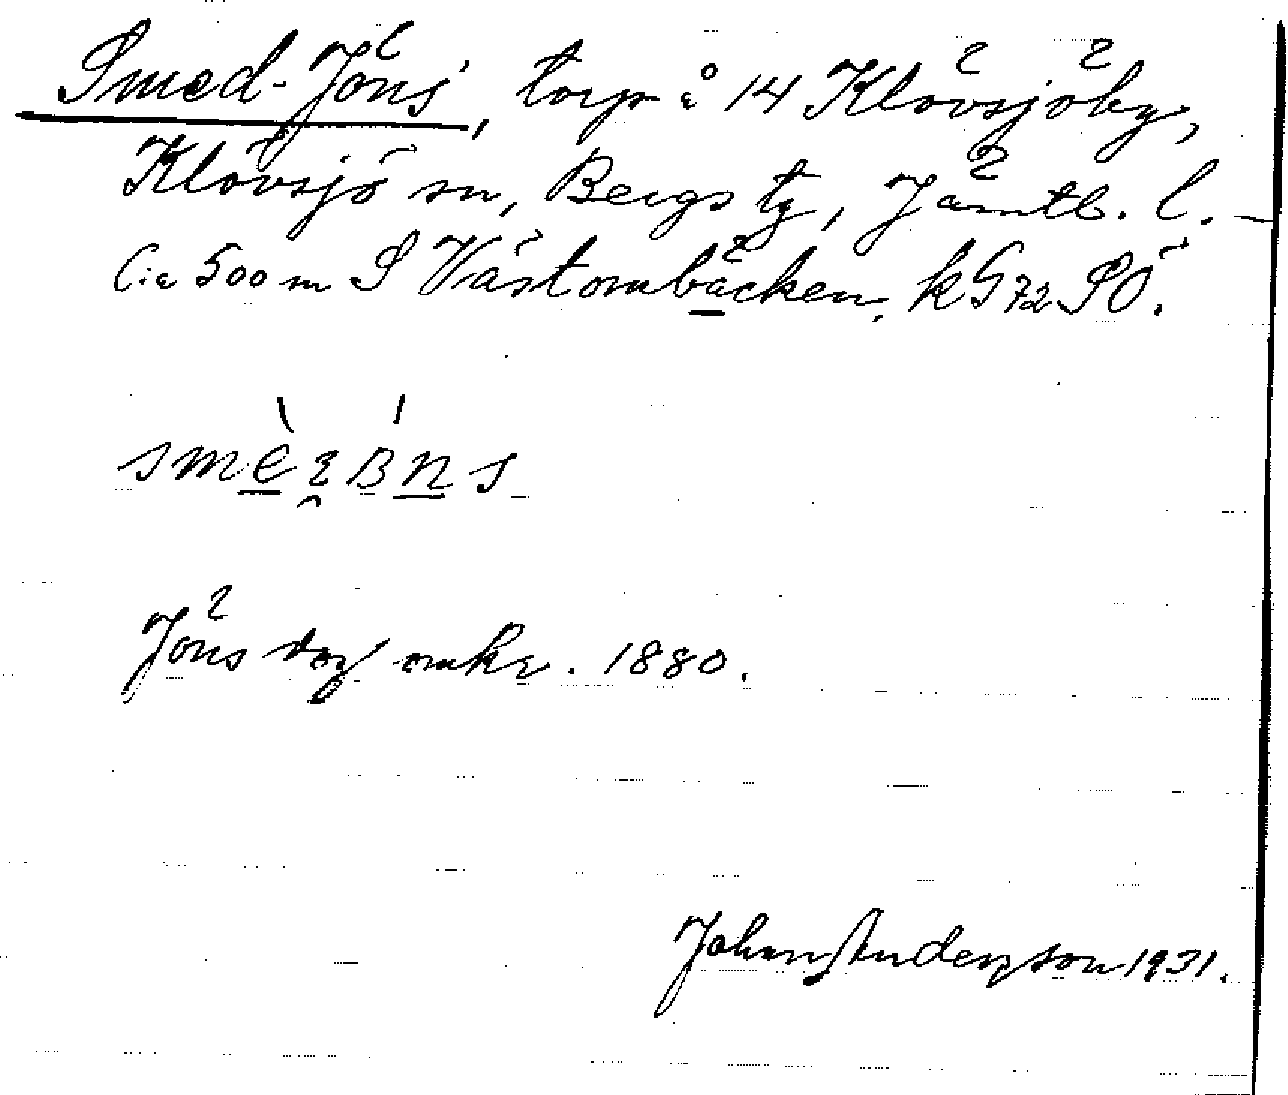 Smed-Jöns', torp å 14 Klövsjöby,
Klövsjö sn, Bergs tg, Jämtl. l. –
C:a 500 m S Västombäcken, kG72 SÖ.
Jöns dog omkr. 1880.
Johan Anderzson 1931.